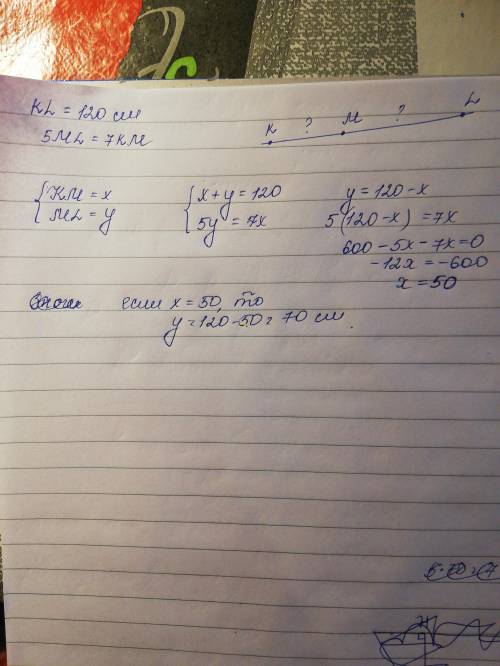 KL = 120 см
5ML = 7KM
K ? M ? L
{ KM = x
ML = y
{ x + y = 120
5y = 7x
y = 120 - x
5(120 - x) = 7x
600 - 5x - 7x = 0
-12x = -600
x = 50
если x = 50, то
y = 120 - 50 = 70 см.